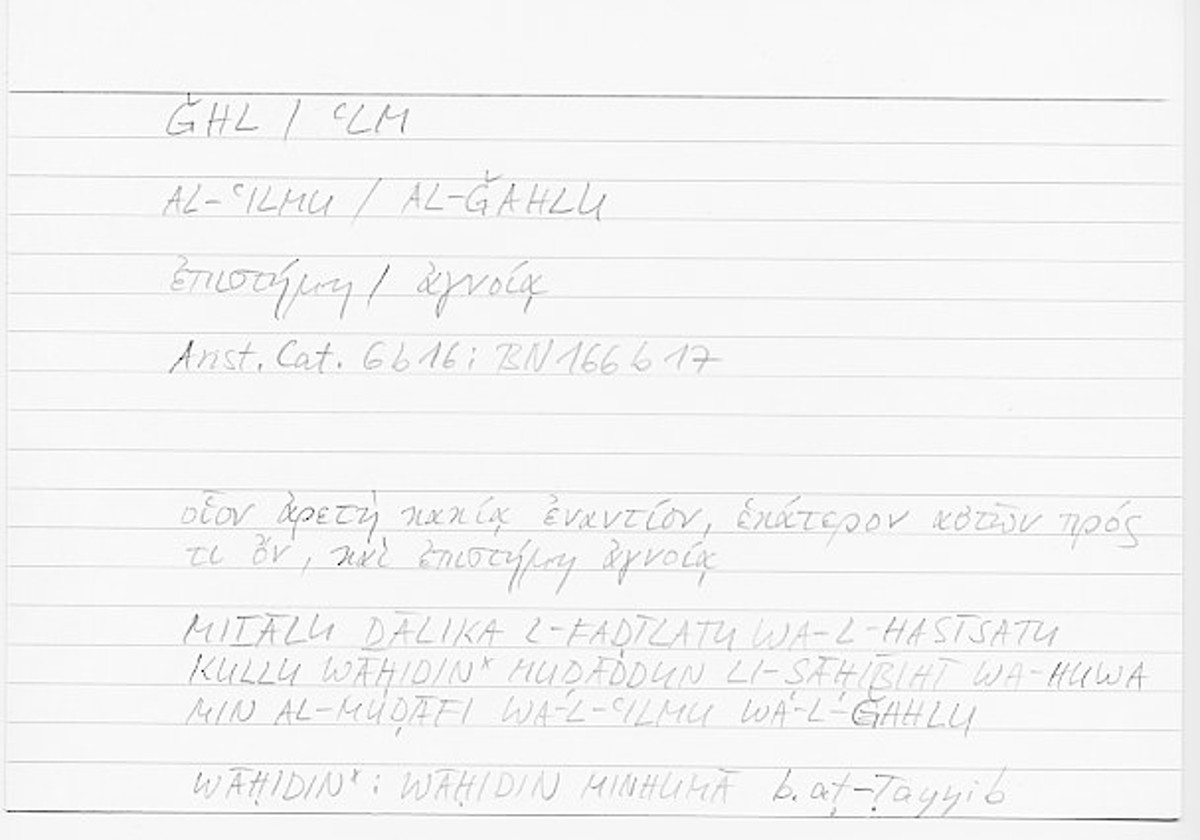 ĞHL / ʿLM
AL-ʿILMU / AL-ĞAHLU
ἐπιστήμη / ἀγνοίᾳ
Arist. Cat. 6b16; BN 166b17
οἷον ἀρετὴ κακίᾳ ἐναντίον, ἑκάτερον αὐτῶν πρός
τι ὄν, καὶ ἐπιστήμη ἀγνοίᾳ
MIṮĀLU ḎĀLIKA L-FAḌĪLATU WA-L-ḪASĪSATU
KULLU WĀḤIDIN* MUḌĀDDUN LI-ṢĀḤIBIHĪ WA-HUWA
MIN AL-MUḌĀFI WA-L-ʿILMU WA-L-ĞAHLU
WĀḤIDIN*: WĀḤIDIN MINHUMĀ b. aṭ-Ṭayyib